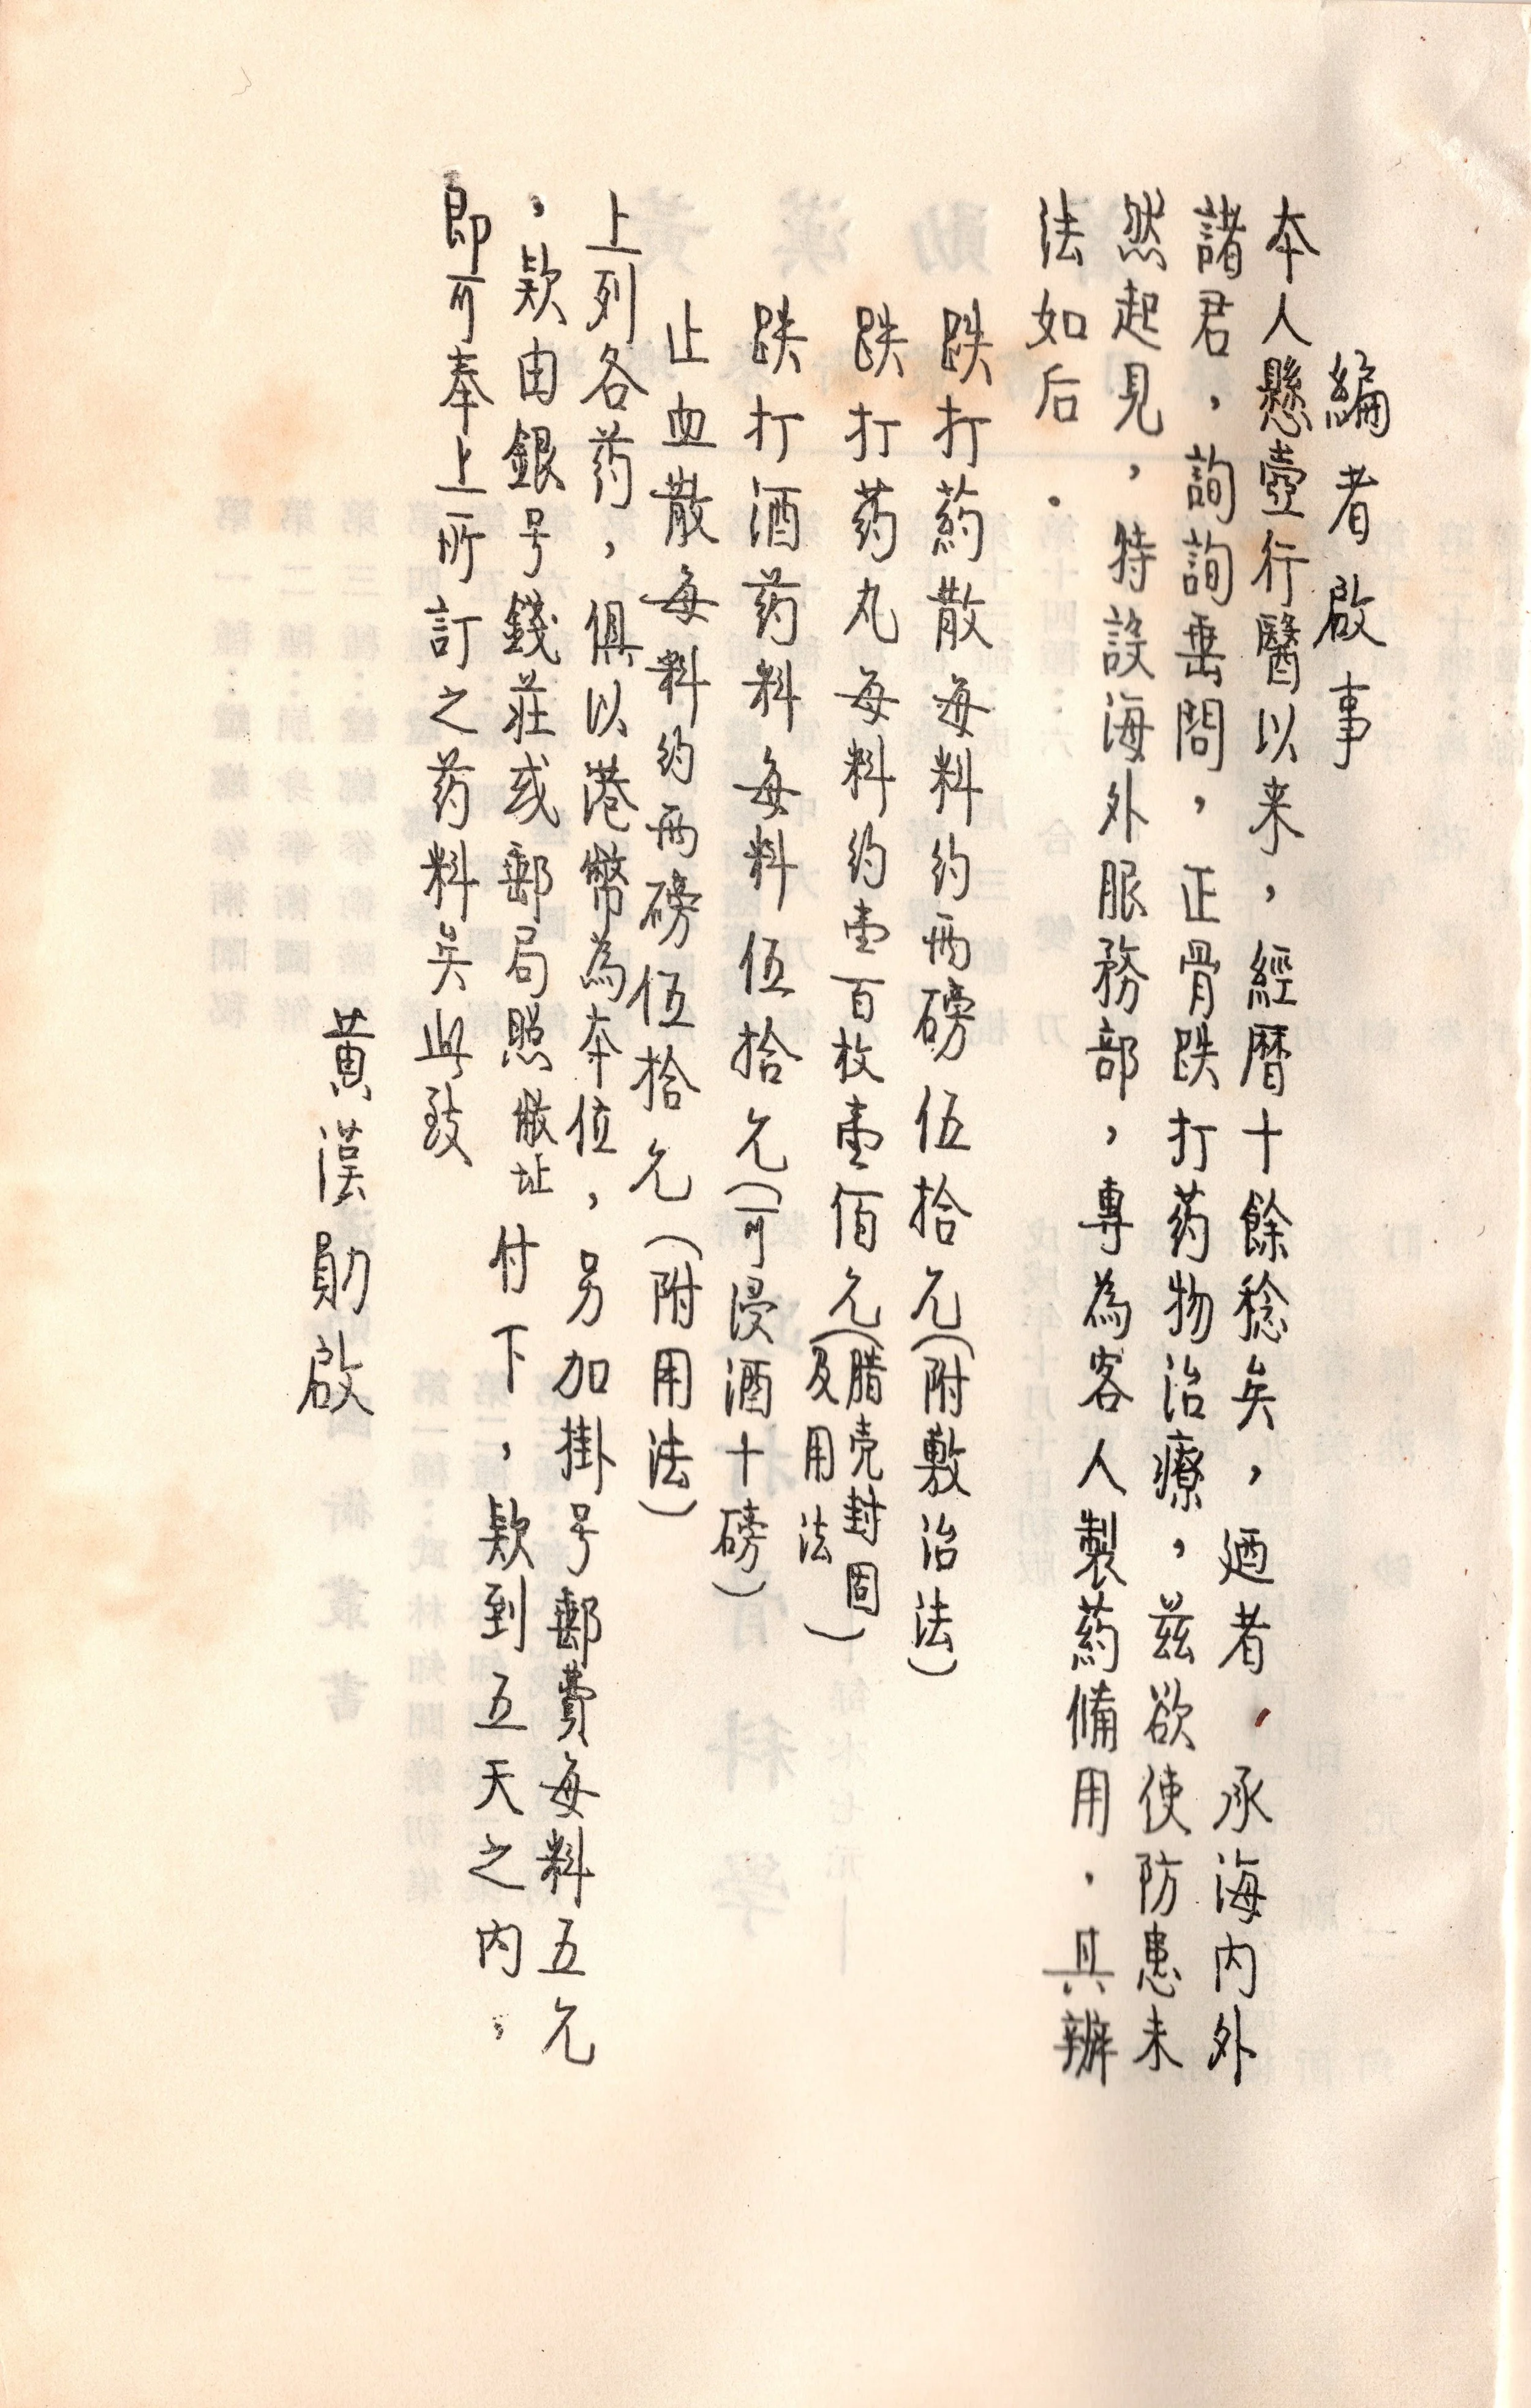 編者啟事
本人懸壺行醫以来，經曆十餘稔矣，廼者，承海内外
諸君，詢詢垂問，正骨跌打药物治療，茲欲使防患未
然起見，特設海外服務部，專為客人製葯俻用．具辦
法如后．
跌打葯散每料约两磅伍拾元（附敷治法）
跌打药丸每料约壹百枚壹佰元（腊壳封固
及用法）
跌打酒药料每料伍拾元（可浸酒十磅）
止血散每料约两磅伍拾元（附用法）
上列各药，俱以港幣為本位，另加掛号郵費每料五元
，欵由銀号錢莊或郵局照做址付下，欵到五天之内，
即可奉上所訂之药料矣此致
黄漢勛啟